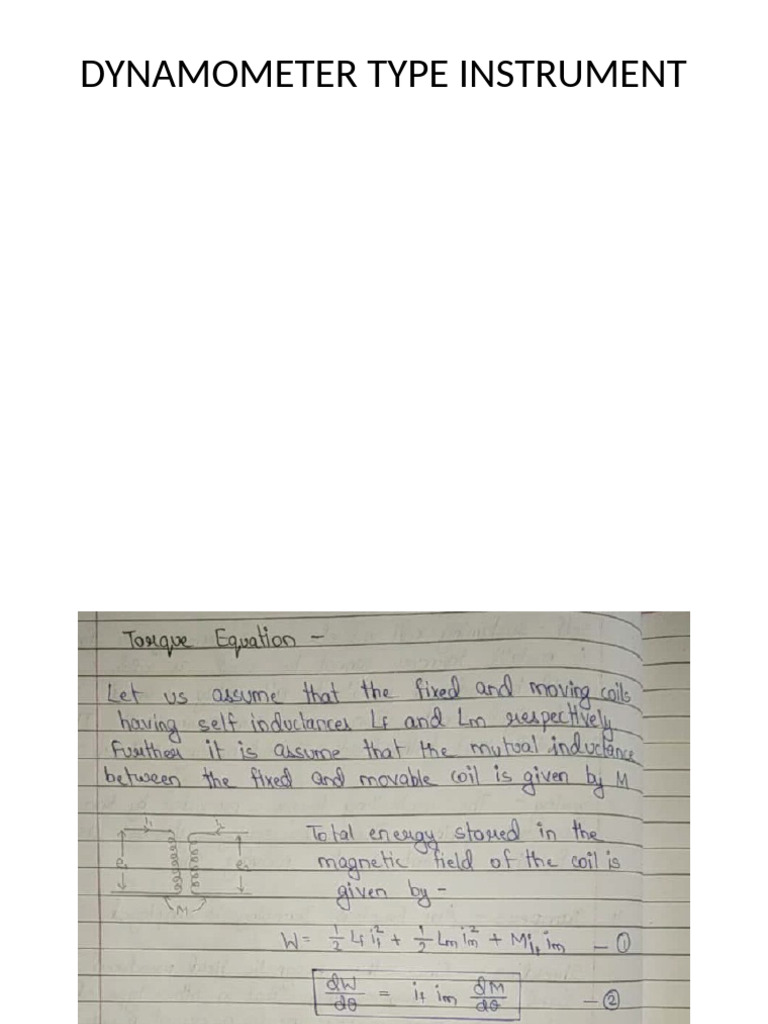 DYNAMOMETER TYPE INSTRUMENT
Torque Equation –
Let us assume that the fixed and moving coils
having self inductances Lf and Lm respectively
Further it is assume that the mutual inductance
between the fixed and movable coil is given by M
Total energy stored in the
magnetic field of the coil is
given by –
M
W = 1/2 Lf if² + 1/2 Lm im² + M if im – ①
dW/dθ = if im dM/dθ – ②